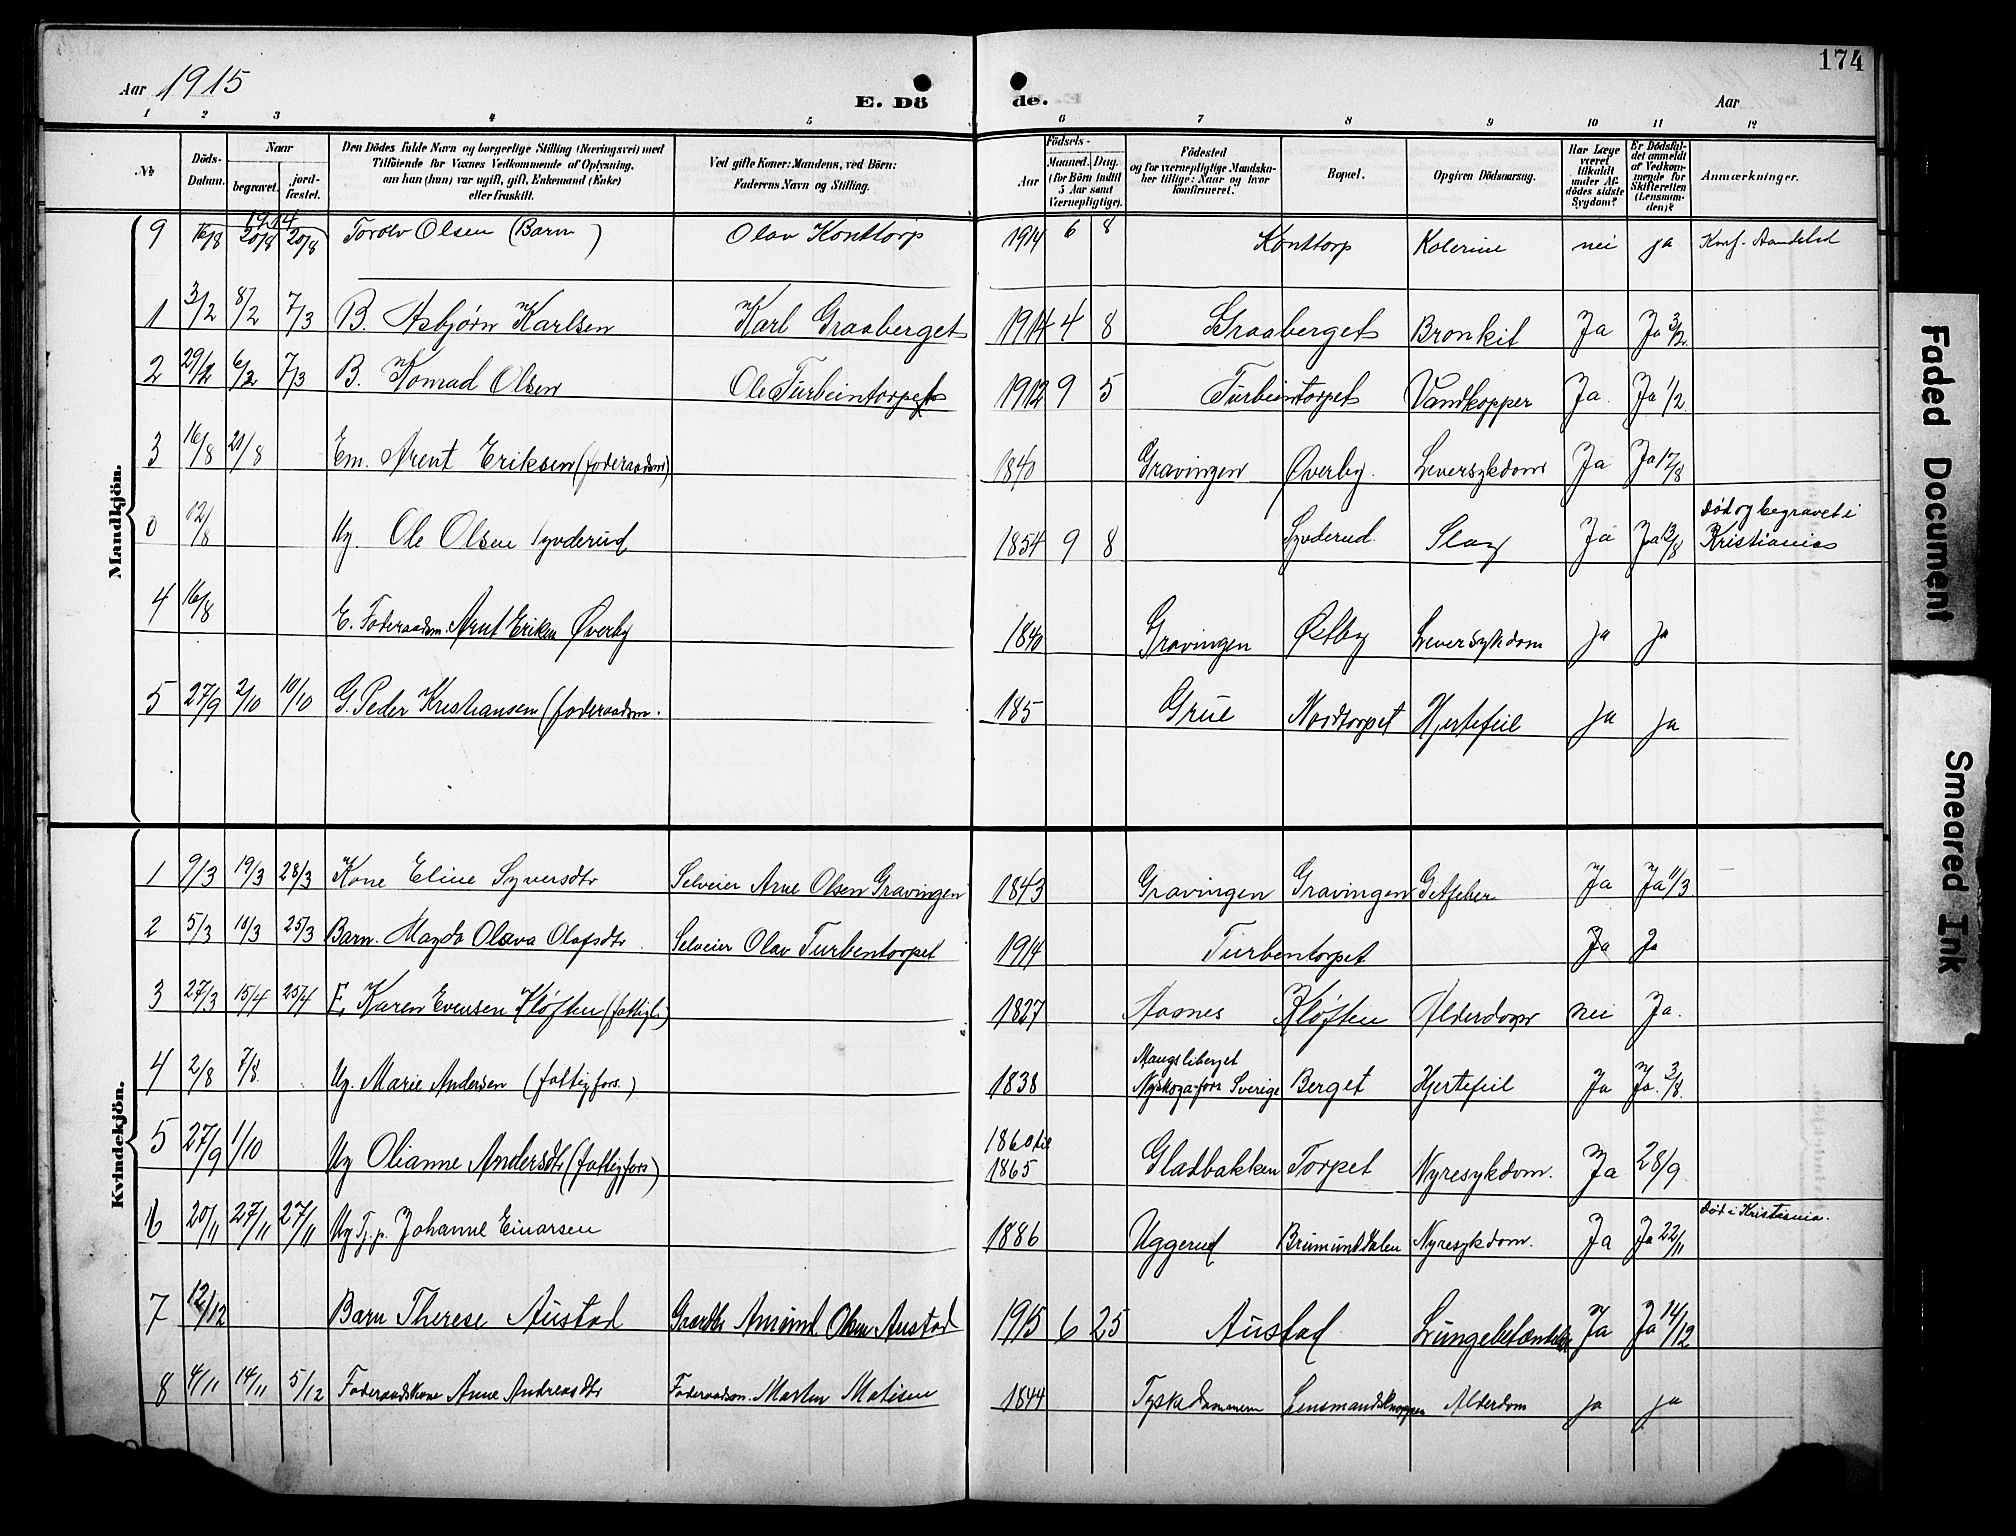 174
Aar 1915
E. Dö de.
Aar
1 2 3 4 5 6 7 8 9 10 11 12
No
Döds-Datum.
Naar
begravet.
jordfæstet.
Den Dödes fulde Navn og borgerlige Stilling (Næringsvei) med
Tilföiende for Voxnes Vedkommende af Oplysning,
om han (hun) var ugift, gift, Enkemand (Enke)
eller fraskilt.
Ved gifte Koner: Mandens, ved Börn:
Faderens Navn og Stilling.
Födsels-
Aar
Maaned. Dag.
(for Börn indtil
5 Aar samt
Værnepligtige).
Födested
og for værnepligtige Mandskaber tillige: Naar og hvor
konfirmeret.
Bopæl.
Opgiven Dödsaarsag.
Har Læge været tilkaldt under Afdödes sidste Sygdom?
Er Dödsfaldet anmeldt af Vedkommende for Skifteretten (Lensmanden)?
Anmærkninger.
Mandkjön.
1914
9 16/8 20/8 20/8 Torolv Olsen (Barn) Olav Konttorp 1914 6 8 Konttorp Kolerine nei ja
1 3/2 8/2 7/3 B. Asbjørn Karlsen Karl Graaberget 1914 4 8 Graaberget Bronkit Ja Ja 3/2
2 29/2 6/2 7/3 B. Konrad Olsen Ole Turbeintorpet 1912 9 5 Turbeintorpet Vandkopper Ja Ja 1/2
3 16/8 20/8 Em. Arent Eriksen (foderaadsm) 1840 Gravingen Øverby. Leversykdom Ja Ja 17/8
0 12/8 Ug. Ole Olsen Syvderud 1854 9 8 Syvderud. Slag Ja Ja 13/8 Død og begravet i Kristiania
4 16/8 E. Foderaadsm. Arnt Eriksen Øverby 1840 Gravingen Østby Leversykdom ja ja
5 27/9 2/10 10/10 G. Peder Kristiansen (foderaadsm. 185 Grue Nordtorpet Hjertefeil ja ja
Kvindekjön.
1 9/3 19/3 28/3 Kone Eline Syversdtr Selveier Arne Olsen Gravingen 1843 Gravingen Gravingen Ja Ja 11/3
2 5/3 10/3 25/3 Barn. Magda Olava Olafsdtr. Selveier Olav Turbentorpet 1914 Turbentorpet Ja Ja
3 27/3 15/4 25/4 E. Karen Evensen Kløften (fattigl.) 1827 Aasnes Kløften Alderdom nei Ja.
4 2/8 7/8. Ug. Marie Andersen (fattigfors.) 1838 Mangsliberget Nyskoga fors Sverige Berget Hjertefeil Ja Ja. 3/8.
5 27/9 1/10 Ug Olianne Andersdtr (fattigfors) 1860 til 1865 Gladbakken Torpet Nyresykdom. Ja 28/9
6 20/11 27/11 27/11 Ug Tj. p. Johanne Einarsen 1886 Uggerud Brumunddalen Nyresykdom. Ja Ja 22/11 Død i Kristiania.
7 12/12 Barn Therese Austad Gaardbr Amund Olsen Austad 1915 6 25 Austad Lungebetændelse Ja Ja 14/12
8 4/11 14/11 5/12 Foderaadskone Anne Andreasdtr Foderaadsm. Morten Matisen 1844 Lensmandsknappen Alderdom ja ja
Faded Document
Smeared Ink